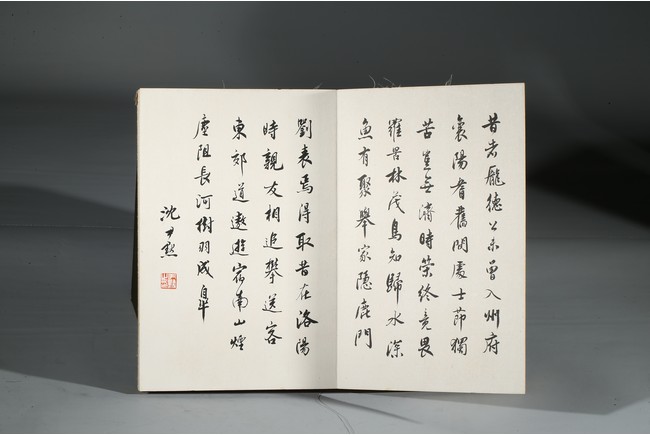 昔者龐德公未曾入州府
襄陽耆舊間處士節獨
苦豈無濟時策終竟畏
羅罟林茂鳥知歸水深
魚有聚舉家隱鹿門
劉表焉得取昔在洛陽
時親友相追攀送客
東郊道遨遊宿南山煙
塵阻長河樹羽成皐
沈尹默